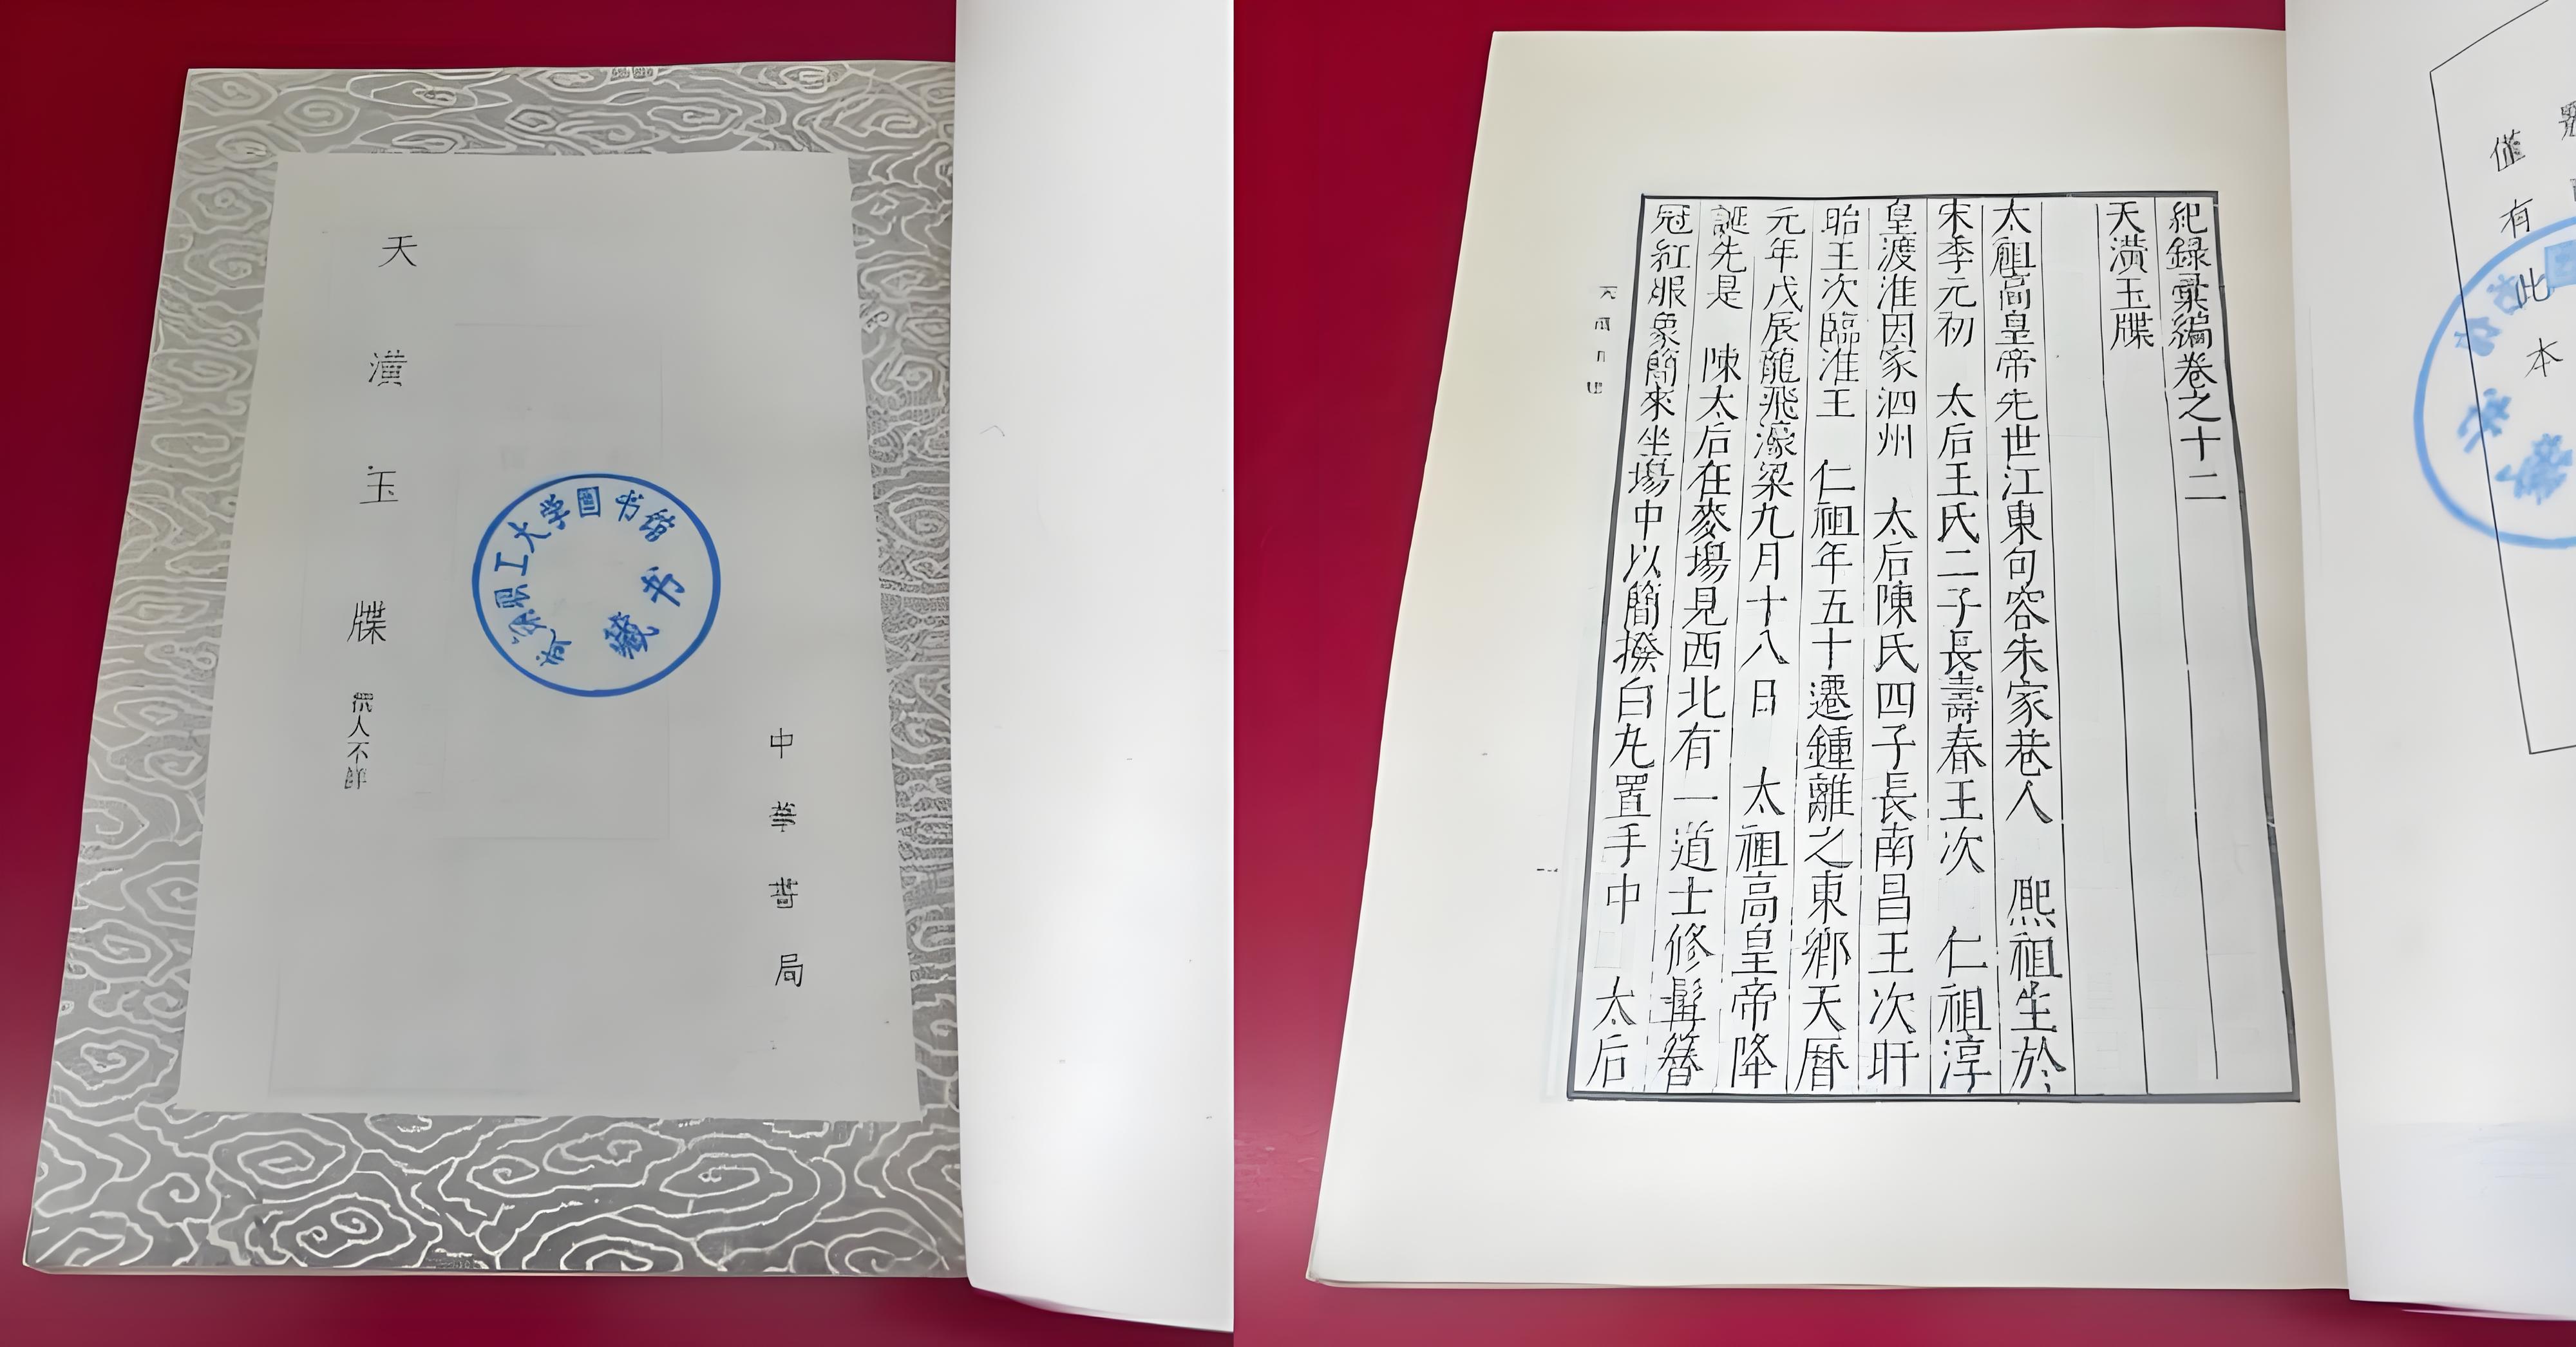 天潢玉牒 撰人不詳
中華書局
职工大学图书馆
藏书
僅有此本
紀録彙編卷之十二
天潢玉牒
太祖高皇帝先世江東句容朱家巷人 熙祖生於
宋季元初 太后王氏二子長壽春王次 仁祖淳
皇渡淮因家泗州 太后陳氏四子長南昌王次盱
眙王次臨淮王 仁祖年五十遷鍾離之東鄉天曆
元年戊辰龍飛濠梁九月十八日 太祖高皇帝降
誕先是 陳太后在麥場見西北有一道士修髯簪
冠紅服象簡來坐場中以簡撥白丸置手中 太后